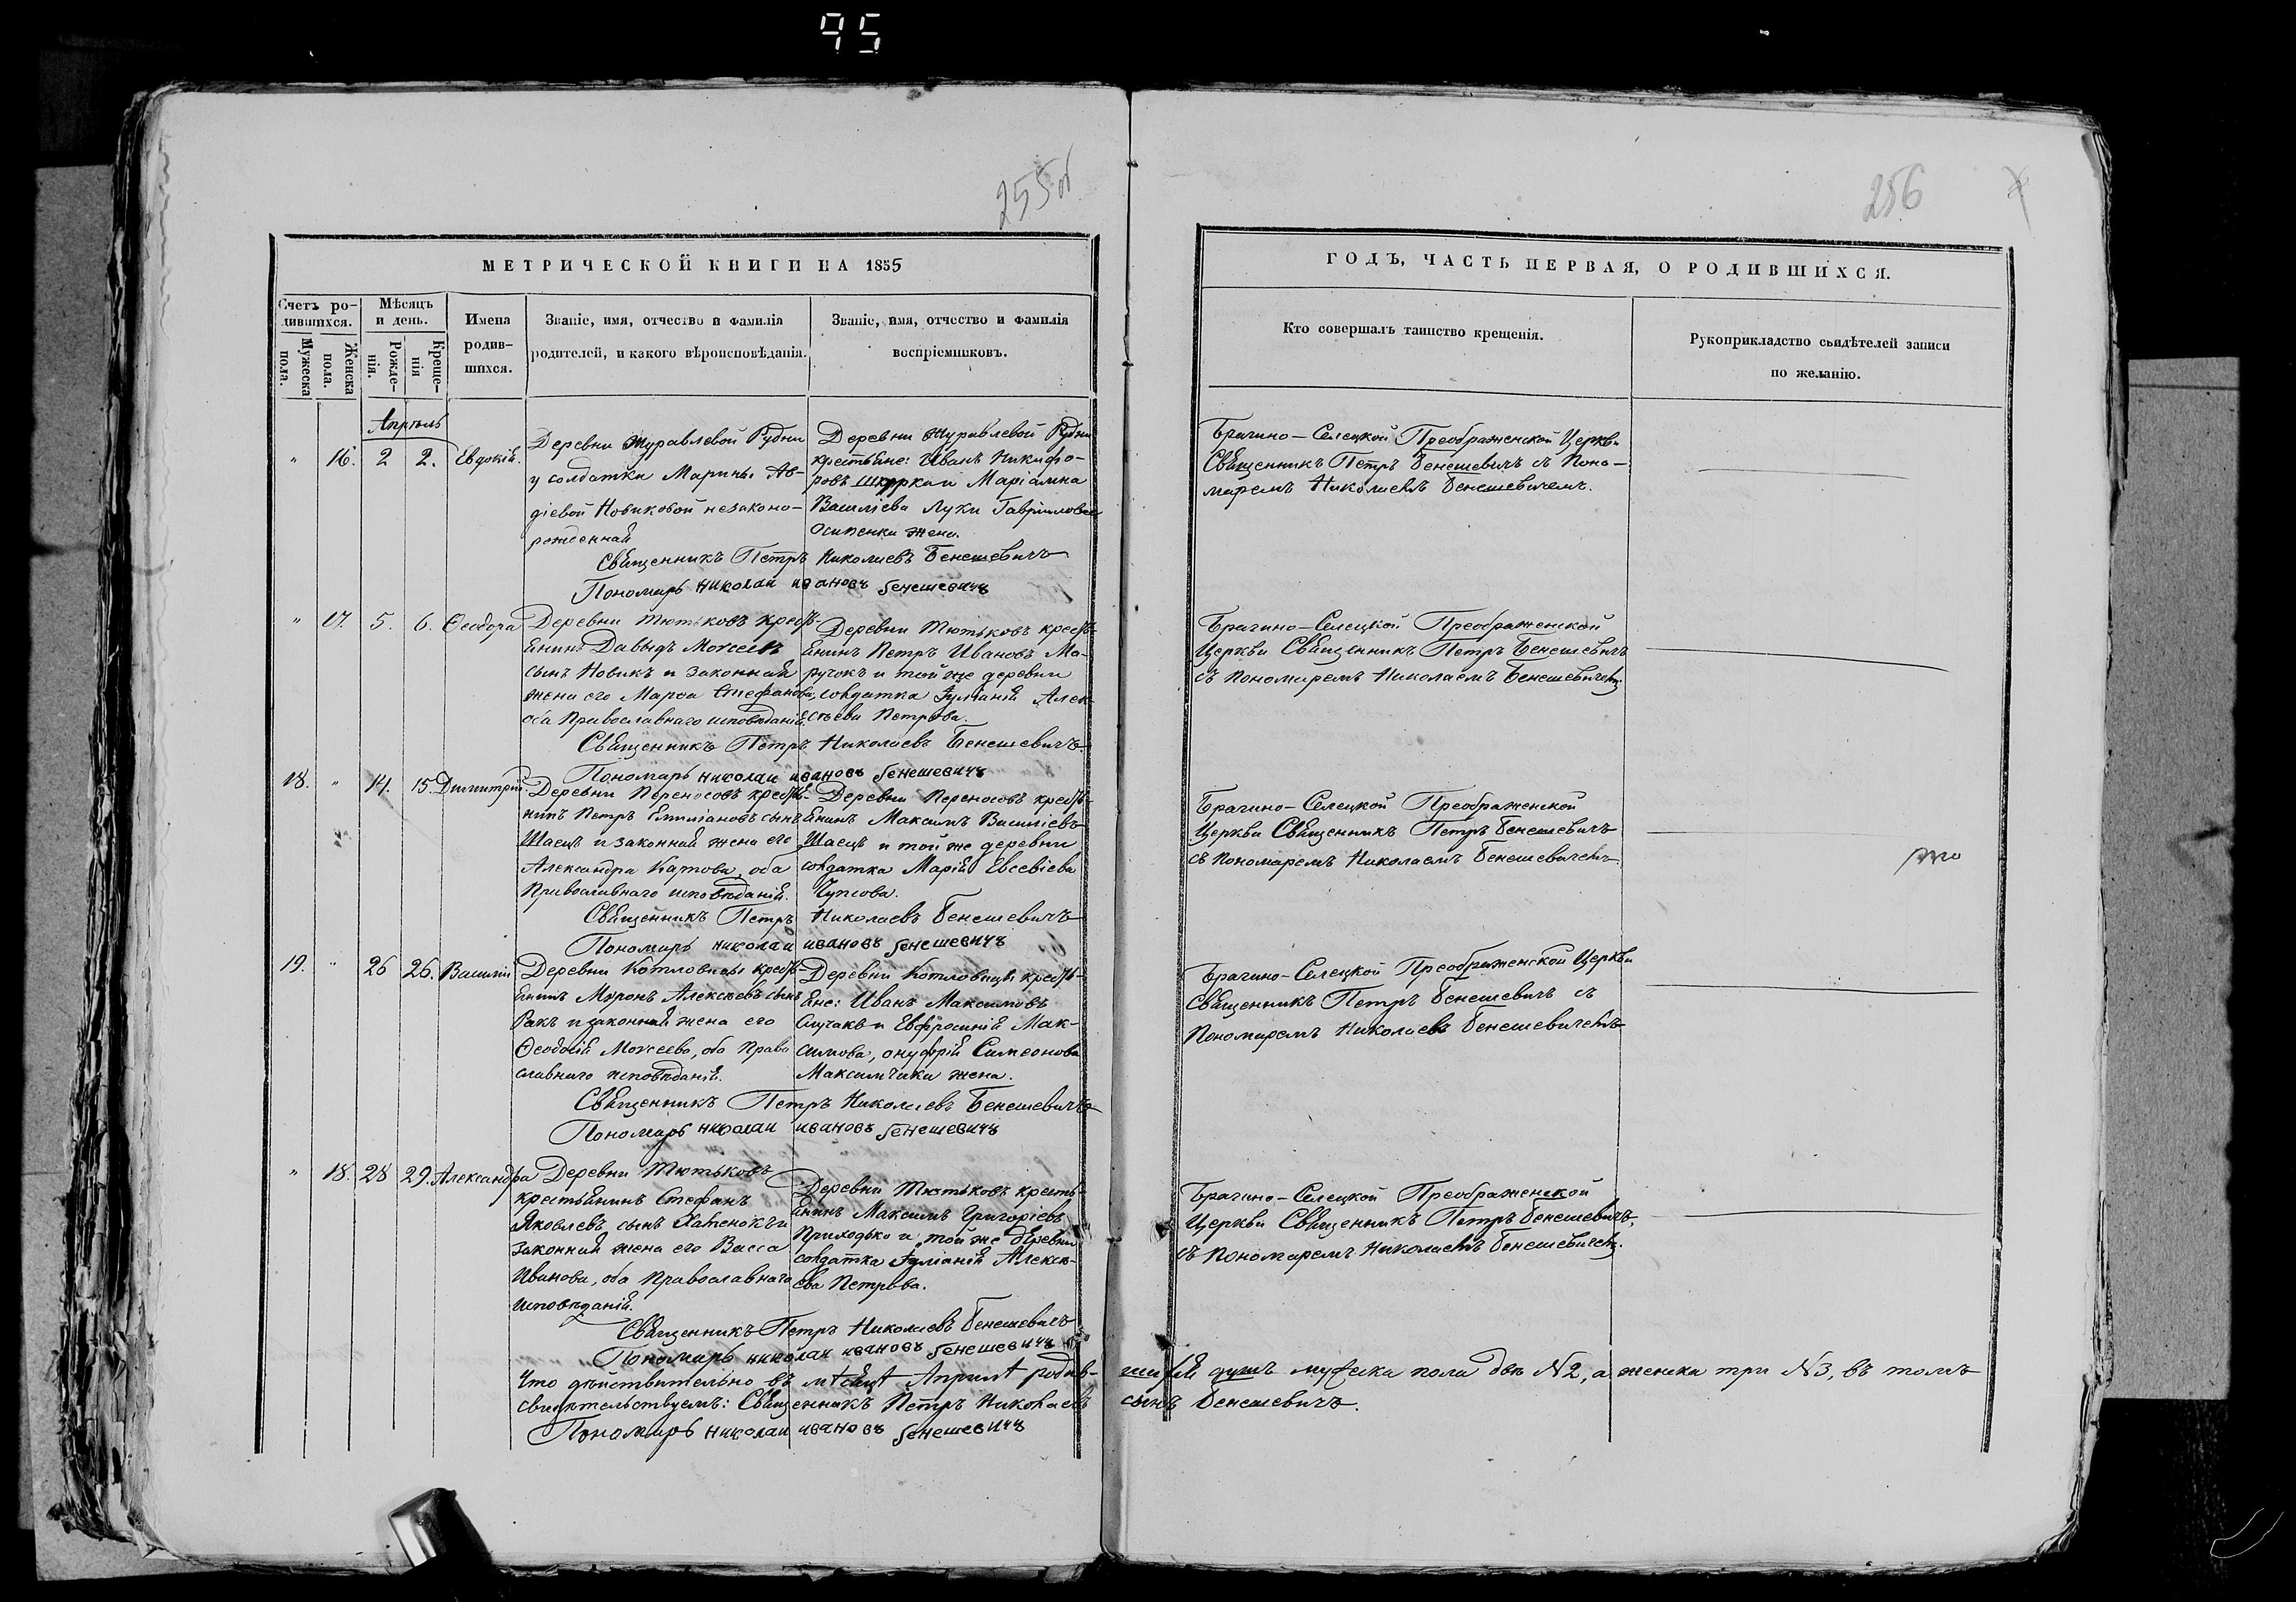 95
255об
МЕТРИЧЕСКОЙ КНИГИ НА 1855
Счетъ ро-
дившихся.
Мужеска
пола.
Женска
пола.
Мѣсяцъ
и день.
Рожде-
нія.
Креще-
нія
Имена
родив-
шихся.
Званіе, имя, отчество и фамилія
родителей, и какого вѣроисповѣданія.
Званіе, имя, отчество и фамилія
воспріемниковъ.
Апрѣль
" 16. 2 2. Евдокія.
Деревни Журавлевой Рудни
у солдатки Марины Ав-
діевой Новиковой незаконо-
рожденная
Деревни Журавлевой Рудни
крестьяне: Иванъ Никифо-
ровъ Шкурка и Маріамна
Василіева Луки Гавріилова
Осипенки жена.
Священникъ Петръ Николаевъ Бенешевичъ
Пономарь николаи ивановъ бенешевичъ
" 17. 5. 6. Ѳеодора
Деревни Тютьковъ кресть-
янинъ Давыдъ Моисеевъ
сынъ Новикъ и законная
жена его Марѳа Стефанова,
оба Православнаго исповѣданія.
Деревни Тютьковъ кресть-
янинъ Петръ Ивановъ Ма-
ручокъ и той же деревни
солдатка Іуліанія Алек-
сѣева Петрова.
Священникъ Петръ Николаевъ Бенешевичъ
Пономарь николаи ивановъ бенешевичъ
18. " 14. 15. Димитрій.
Деревни Переносовъ крестья-
нинъ Петръ Емиліановъ сынъ
Шаецъ и законная жена его
Александра Карпова, оба
Православнаго исповѣданія.
Деревни Переносовъ кресть-
янинъ Максимъ Василіевъ
Шаецъ и той же деревни
солдатка Марія Евсевіева
Чупсова.
Священникъ Петръ Николаевъ Бенешевичъ
Пономарь николаи ивановъ бенешевичъ
19. " 26 26. Василій
Деревни Котловицы кресть-
янинъ Миронъ Алексѣевъ сынъ
Ракъ и законная жена его
Ѳеодосія Моисеева, оба Право
славнаго исповѣданія.
Деревни Котловицы кресть-
яне: Иванъ Максимовъ
Случакъ и Евфросинія Мак-
симова, онуфрія Симеонова
Максимчика жена.
Священникъ Петръ Николаевъ Бенешевичъ
Пономарь николаи ивановъ бенешевичъ
" 18. 28 29. Александра
Деревни Тютьковъ
крестьянинъ Стефанъ
Яковлевъ сынъ Хатенокъ и
законная жена его Васса
Иванова, оба Православнаго
исповѣданія.
Деревни Тютьковъ кресть-
янинъ Максимъ Григоріевъ
Приходько и той же деревни
солдатка Іуліанія Алексѣ-
ева Петрова.
Священникъ Петръ Николаевъ Бенешевичъ
Пономарь николаи ивановъ бенешевичъ
Что дѣйствительно въ мѣсяцѣ Апрѣлѣ родив-
свидѣтельствуемъ: Священникъ Петръ Николаевъ
Пономарь николаи ивановъ бенешевичъ
256
ГОДЪ, ЧАСТЬ ПЕРВАЯ, О РОДИВШИХСЯ.
Кто совершалъ таинство крещенія.
Рукоприкладство свидѣтелей записи
по желанію.
Брагино-Селецкой Преображенской Церкви
Священникъ Петръ Бенешевичъ съ Поно-
маремъ Николаемъ Бенешевичемъ.
Брагино-Селецкой Преображенской
Церкви Священникъ Петръ Бенешевичъ
съ пономаремъ Николаемъ Бенешевичемъ.
Брагино-Селецкой Преображенской
Церкви Священникъ Петръ Бенешевичъ
съ пономаремъ Николаемъ Бенешевичемъ
Брагино-Селецкой Преображенской Церкви
Священникъ Петръ Бенешевичъ съ
Пономаремъ Николаевъ Бенешевичемъ
Брагино-Селецкой Преображенской
Церкви Священникъ Петръ Бенешевичъ,
съ пономаремъ Николаемъ Бенешевичемъ.
шихся душъ мужеска пола двѣ N2, а женска три N3, въ томъ
сынъ Бенешевичъ.